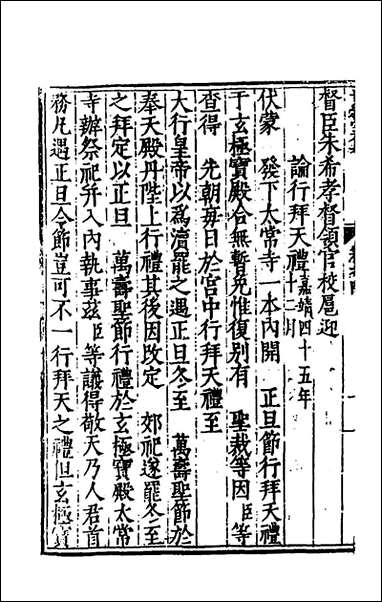 督臣朱希孝督領官校扈迎
論行拜天禮嘉靖四十五年十二月
伏蒙　發下太常寺一本內開　正旦節行拜天禮
于玄極寶殿合無暫免惟復别有　聖裁等因臣等
查得　先朝毎日於宮中行拜天禮至
大行皇帝以爲瀆罷之遇正旦冬至　萬壽聖節於
奉天殿丹陛上行禮其後因改定　郊祀遂罷冬至
之拜定以正旦　萬壽聖節行禮於玄極寶殿太常
寺辦祭祀并入內執事茲臣等議得敬天乃人君首
務凡遇正旦令節豈可不一行拜天之禮但玄極寶